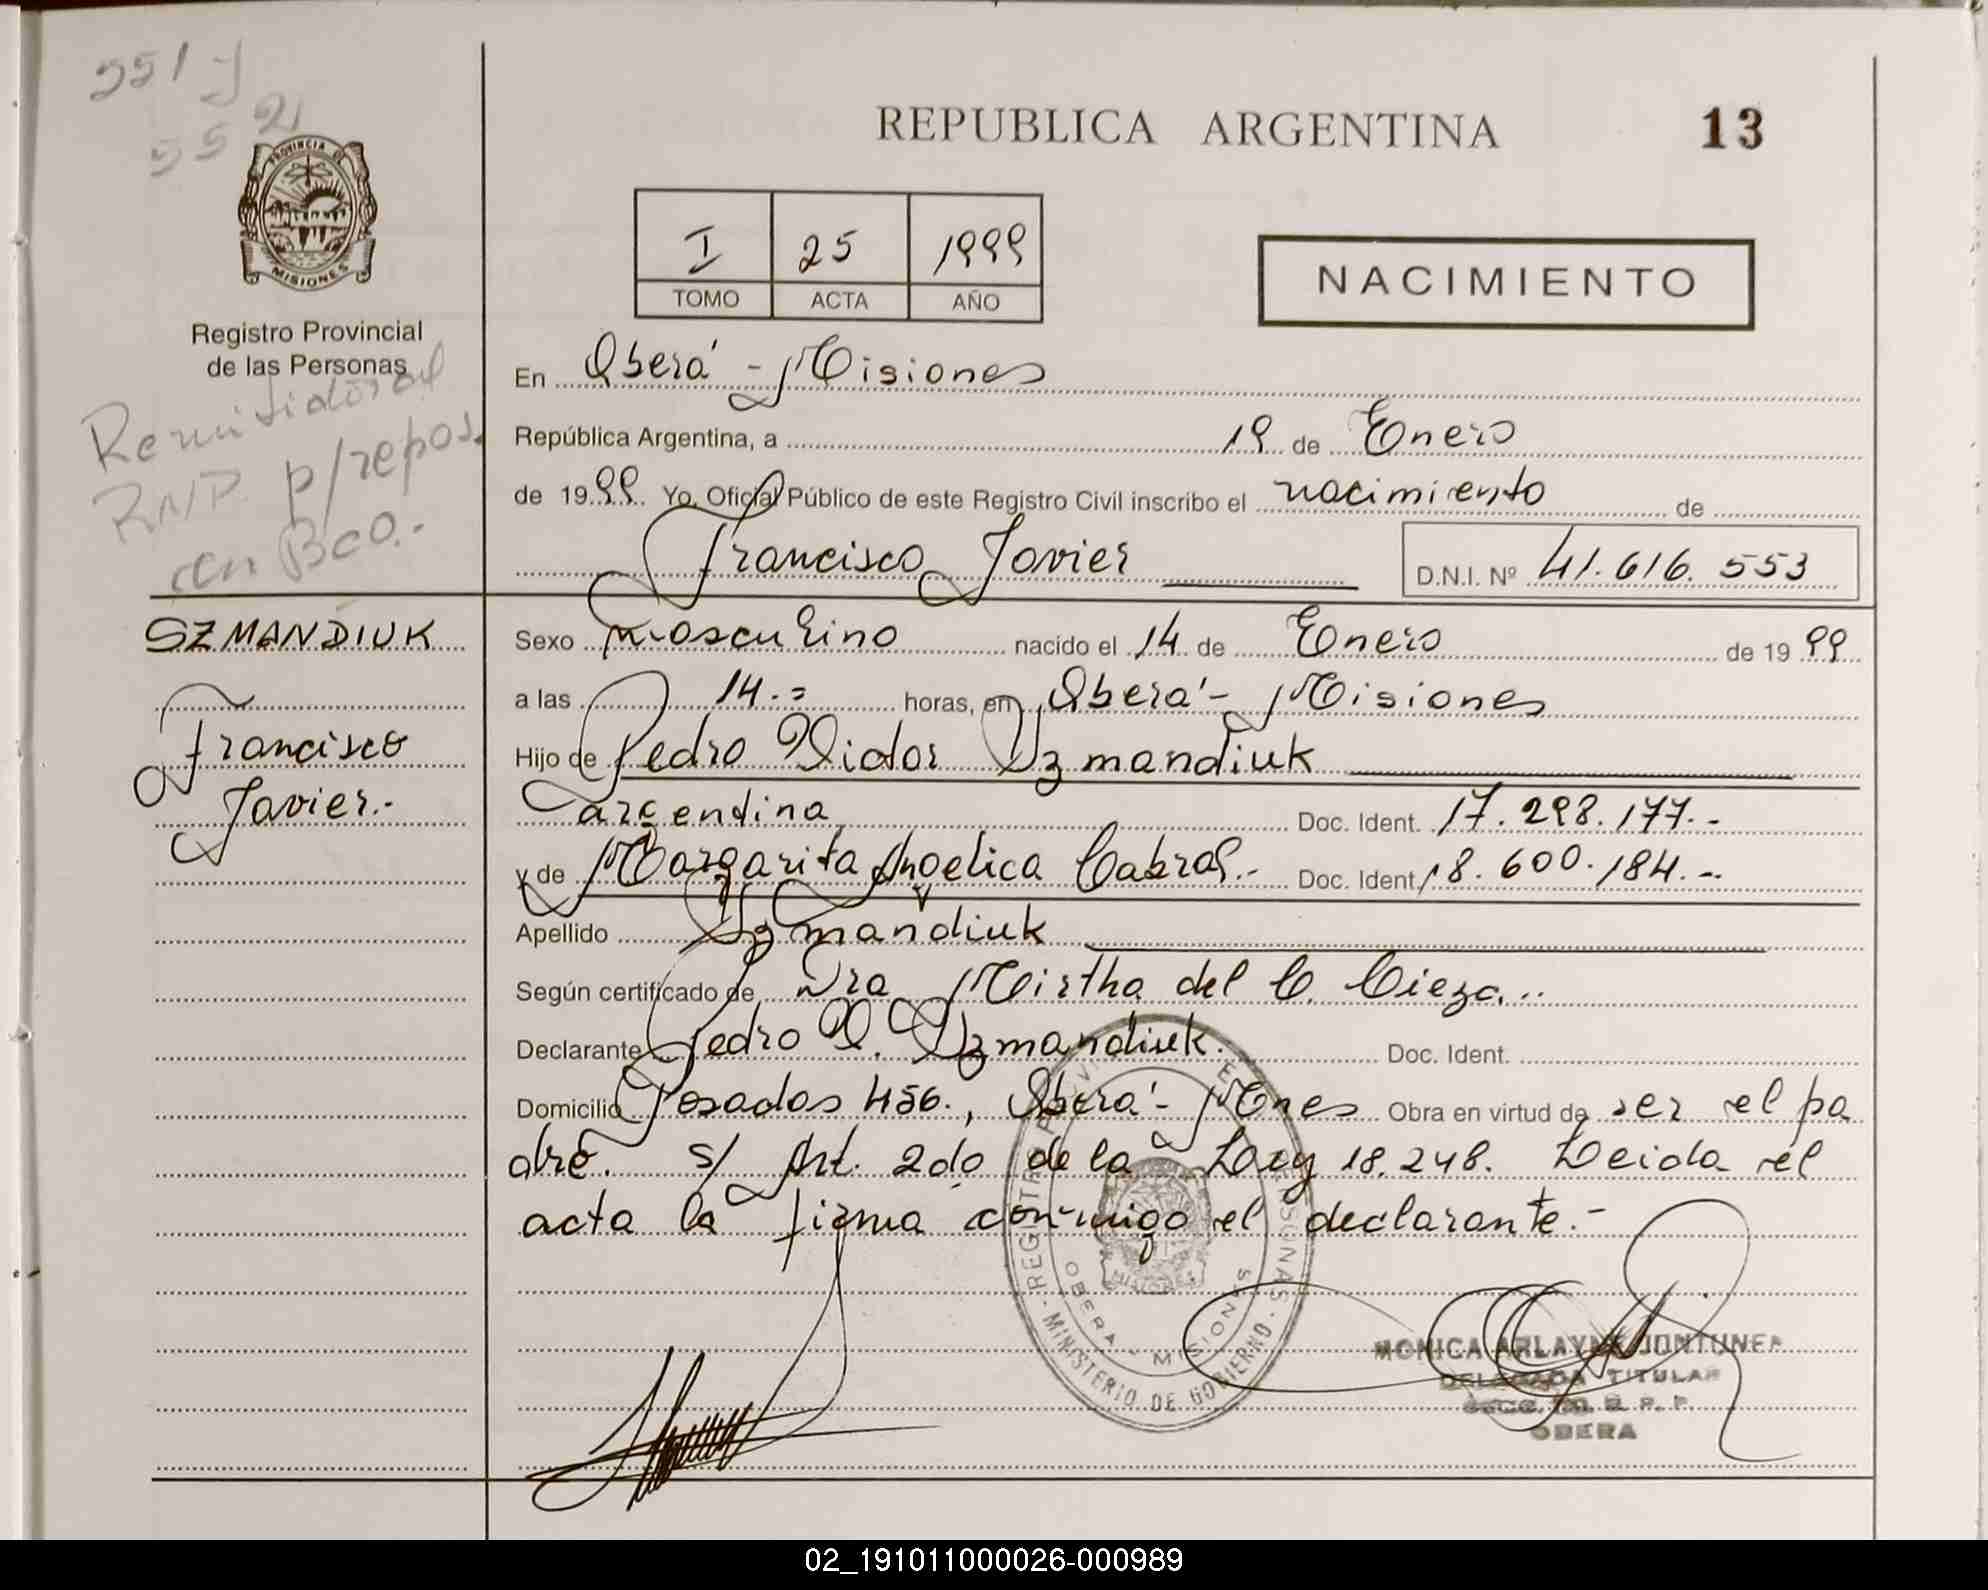 551 y
552
PROVINCIA DE
MISIONES
Registro Provincial
de las Personas
Remitido al
RNP. p/repos.
en Bco.-
SZMANDIUK
Francisco
Javier.-
REPUBLICA ARGENTINA
13
I 25 1999
TOMO ACTA AÑO
NACIMIENTO
En Oberá - Misiones
República Argentina, a 19 de Enero
de 1999. Yo, Oficial Público de este Registro Civil inscribo el nacimiento de
Francisco Javier
D.N.I. Nº 41.616.553
Sexo masculino nacido el 14 de Enero de 1999
a las 14.= horas, en Oberá - Misiones
Hijo de Pedro Sidor Szmandiuk
argentina Doc. Ident. 17.298.177.-
y de Margarita Angelica Cabral.- Doc. Ident. 18.600.184.-
Apellido Szmandiuk
Según certificado de Dra Mirtha del C. Cieza.-
Declarante Pedro S. Szmandiuk. Doc. Ident.
Domicilio Posadas 456., Oberá - Mnes Obra en virtud de ser el pa
dre. s/ Art. 2do de la Ley 18.248. Leida el
acta la firma conmigo el declarante.-
MINISTERIO DE GOBIERNO
OBERA - MISIONES
MISIONES
MONICA ARLAYNE
DELEGADA TITULAR
OBERA
02_191011000026-000989